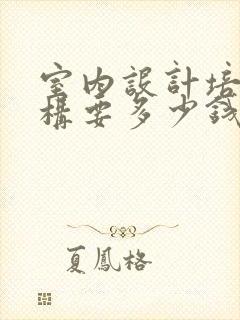 室內設計培
構要多少錢
夏鳳格